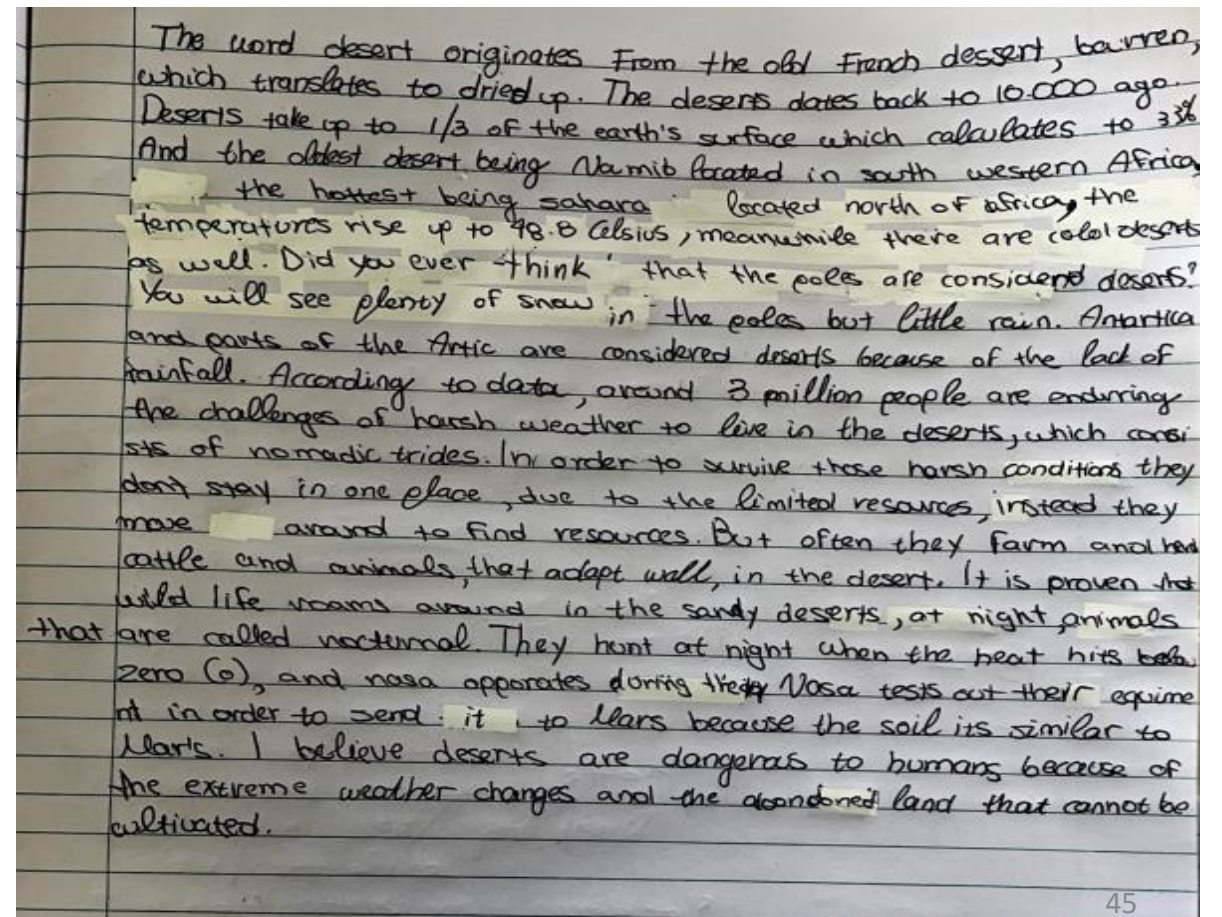 The word desert originates From the old French dessert, barren,
which translates to dried up. The deserts dates back to 10.000 ago.
Deserts take up to 1/3 of the earth's surface which calculates to 33%
And the oldest desert being Namib located in south western Africa,
the hottest being sahara located north of africa, the
temperatures rise up to 48.8 Celsius, meanwhile there are cold deserts
as well. Did you ever think that the poles are considerd deserts?
You will see plenty of snow in the poles but little rain. Antartica
and parts of the Artic are considered deserts because of the lack of
rainfall. According to data, around 3 million people are enduring
the challenges of harsh weather to live in the deserts, which consi
sts of nomadic trides. In order to survive those harsh conditions they
don't stay in one place, due to the limited resources, instead they
move around to find resources. But often they farm and herd
cattle and animals, that adapt wall, in the desert. It is proven that
wild life roams around in the sandy deserts, at night animals
that are called nocturnal. They hunt at night when the heat hits below
zero (0), and nasa opparates during the Nasa tests out their equime
nt in order to send it to Mars because the soil its similar to
Mars. I believe deserts are dangerous to humans because of
the extreme weather changes and the abandoned land that cannot be
cultivated.
45